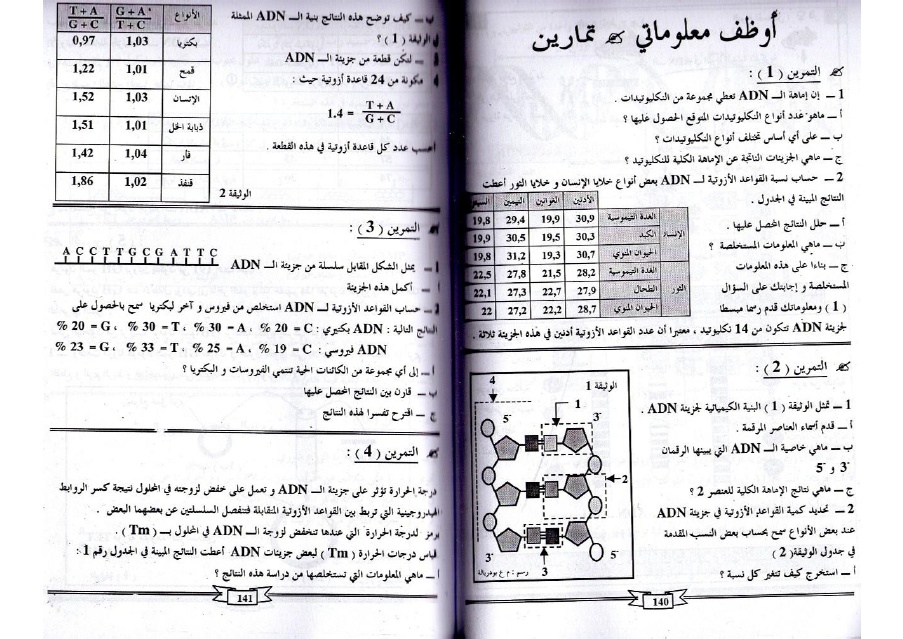 أوظف معلوماتي ✍ تمارين
✍ التمرين ( 1 ) :
1 – إن إماهة الـ ADN تعطي مجموعة من النكليوتيدات .
أ – ماهو عدد أنواع النكليوتيدات المتوقع الحصول عليها ؟
ب – على أي أساس تختلف أنواع النكليوتيدات ؟
ج – ماهي الجزيئات الناتجة عن الإماهة الكلية للنكليوتيد ؟
2 – حساب نسبة القواعد الآزوتية لـ ADN بعض أنواع خلايا الإنسان و خلايا الثور أعطت
النتائج المبينة في الجدول .
الأدنين الغوانين التيمين
الإنسان الغدة التيموسية 30,9 19,9 29,4 19,8
الكبد 30,3 19,5 30,5 19,9
الحيوان المنوي 30,7 19,3 31,2 19,8
الثور الغدة التيموسية 28,2 21,5 27,8 22,5
الطحال 27,9 22,7 27,3 22,1
الحيوان المنوي 28,7 22,2 27,2 22
أ – حلل النتائج المحصل عليها .
ب – ماهي المعلومات المستخلصة ؟
ج – بناءا على هذه المعلومات
المستخلصة و إجابتك على السؤال
( 1 ) ومعلوماتك قدم رسما مبسطا
لجزيئة ADN تتكون من 14 نكليوتيد ، معتبرا أن عدد القواعد الآزوتية أدنين في هذه الجزيئة ثلاثة .
✍ التمرين ( 2 ) :
1 – تمثل الوثيقة ( 1 ) البنية الكيميائية لجزيئة ADN .
أ – قدم أسماء العناصر المرقمة .
ب – ماهي خاصية الـ ADN التي يبينها الرقمان
3َ و 5َ
ج – ماهي نتائج الإماهة الكلية للعنصر 2 ؟
2 – تحديد كمية القواعد الآزوتية في جزيئة ADN
عند بعض الأنواع سمح بحساب بعض النسب المقدمة
في جدول الوثيقة( 2 )
أ – استخرج كيف تتغير كل نسبة ؟
الوثيقة 1
4
1
5َ
3َ
2
3َ
5َ
3
رسم : م ع بوهريالة
140
ب – كيف توضح هذه النتائج بنية الـ ADN الممثلة
في الوثيقة ( 1 ) ؟
لتكن قطعة من جزيئة الـ ADN
مكونة من 24 قاعدة آزوتية حيث :
T + A / G + C = 1.4
أحسب عدد كل قاعدة آزوتية في هذه القطعة .
الأنواع G + A / T + C T + A / G + C
بكتريا 1,03 0,97
قمح 1,01 1,22
الإنسان 1,03 1,52
ذبابة الخل 1,01 1,51
فأر 1,04 1,42
قنفذ 1,02 1,86
الوثيقة 2
التمرين ( 3 ) :
A C C T T G C G A T T C
يمثل الشكل المقابل سلسلة من جزيئة الـ ADN
أكمل هذه الجزيئة
حساب القواعد الآزوتية لـ ADN استخلص من فيروس و آخر لبكتريا سمح بالحصول على
النتائج التالية : ADN بكتيري : C = 20 % ، A = 30 % ، T = 30 % ، G = 20 %
ADN فيروسي : C = 19 % ، A = 25 % ، T = 33 % ، G = 23 %
أ – إلى أي مجموعة من الكائنات الحية تنتمي الفيروسات و البكتريا ؟
ب – قارن بين النتائج المحصل عليها
ج – اقترح تفسرا لهذه النتائج
✍ التمرين ( 4 ) :
درجة الحرارة تؤثر على جزيئة الـ ADN و تعمل على خفض لزوجته في المحلول نتيجة كسر الروابط
الهيدروجينية التي تربط بين القواعد الآزوتية المتقابلة فتنفصل السلسلتين عن بعضهما البعض .
يرمز لدرجة الحرارة التي عندها تنخفض لزوجة الـ ADN في المحلول بـ ( Tm ) .
قياس درجات الحرارة ( Tm ) لبعض جزيئات ADN أعطت النتائج المبينة في الجدول رقم 1 :
أ – ماهي المعلومات التي تستخلصها من دراسة هذه النتائج ؟
141